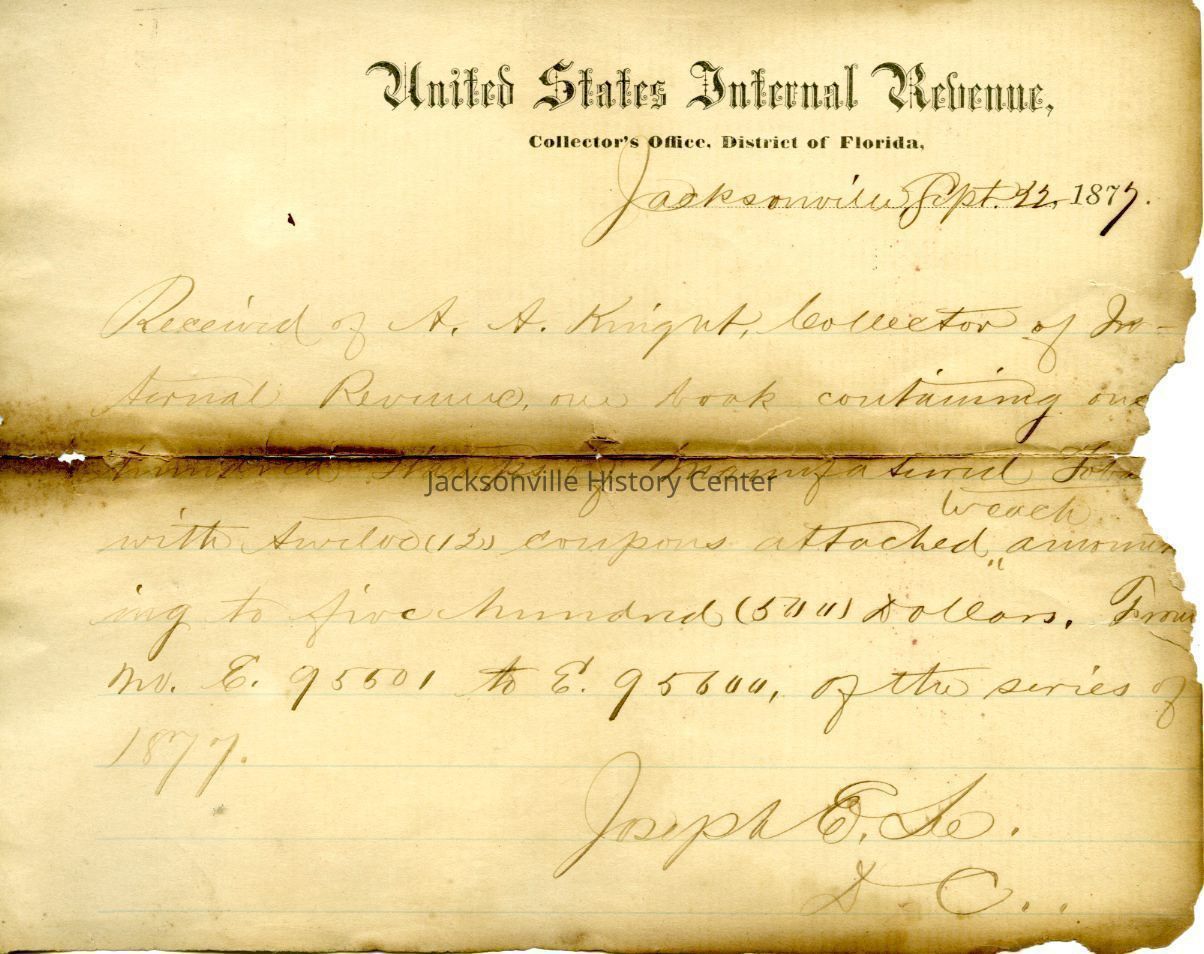 United States Internal Revenue,
Collector's Office, District of Florida,
Jacksonville, Sept. 22, 1877.
Received of A. A. Knight, Collector of In-
ternal Revenue, one book containing one
hundred of Manufatured Toba
Jacksonville History Center
each
with twelve (12) coupons attached, amount
ing to five hundred (500) Dollars. From
No. E. 95501 to E. 95600, of the series of
1877.
Joseph E. Lee.
D. C.